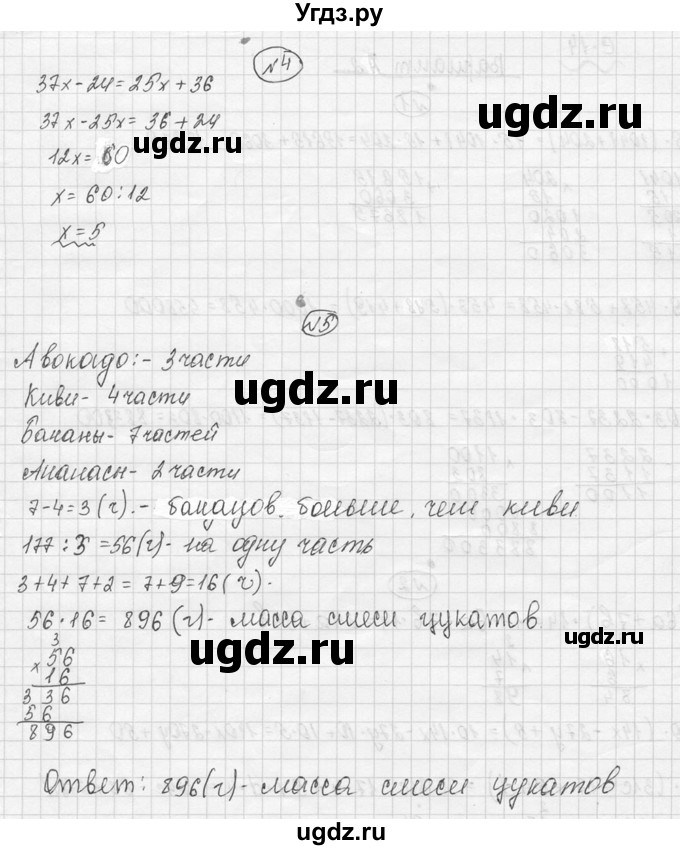 Угдз.ру
№4
37x-24=25x+36
37x-25x=36+24
12x=60
x=60:12
x=5
№5
Авокадо:- 3 части
Киви- 4 части
Бананы- 7 частей
Ананасы- 2 части
7-4=3(ч).- больше, чем киви
177:3=56(г)- на одну часть
3+4+7+2=7+9=16(ч).
56·16=896(г)- масса смеси цукатов
3
×56
16
336
56
896
Ответ: 896(г)- масса смеси цукатов
ugdz.ru
ugdz.ru
ugdz.ru
ugdz.ru
ugdz.ru
ugdz.ru
ugdz.ru